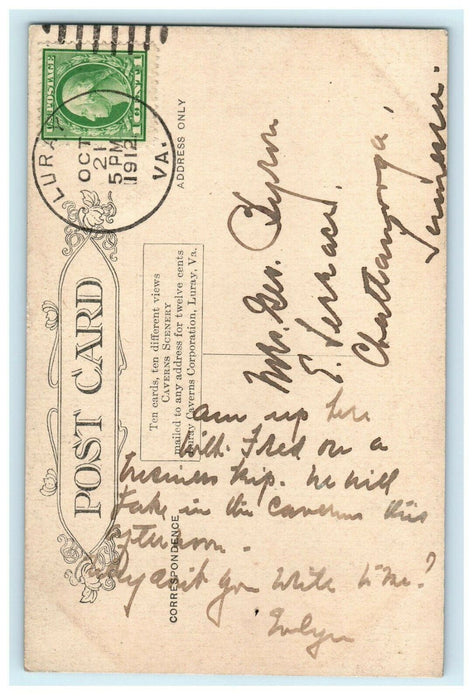 U.S. POSTAGE
1 CENT 1
LURAY
VA.
OCT
21
5 PM
1912
POST CARD
ADDRESS ONLY
Ten cards, ten different views
CAVERNS SCENERY
mailed to any address for twelve cents
Luray Caverns Corporation, Luray, Va.
CORRESPONDENCE
Mrs. Geo. Byron
E. Terrace,
Chattanooga,
Tennessee.
am up here
with Fred on a
business trip. We will
take in the caverns this
afternoon.
Why don't you write to me?
Evelyn